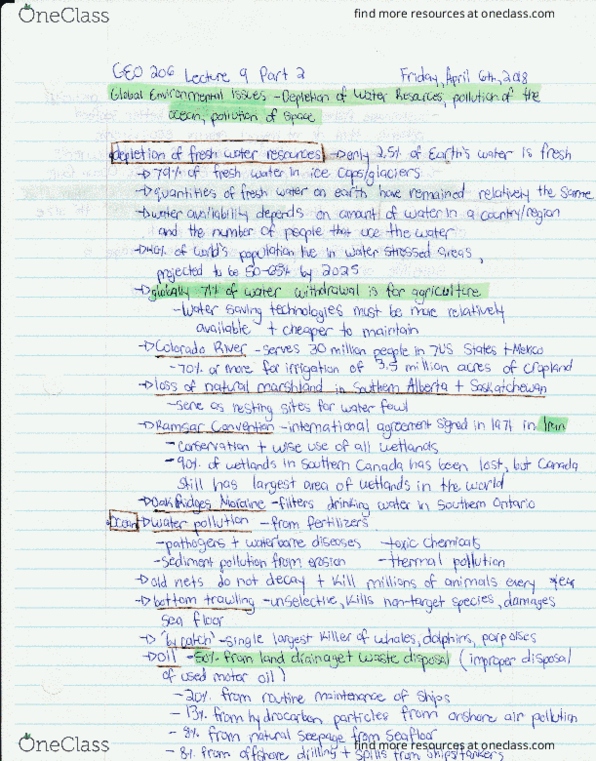 OneClass
find more resources at oneclass.com
GEO 206 Lecture 9 Part 2 Friday, April 6th, 2018
Global Environmental Issues - Depletion of Water Resources, pollution of the
ocean, pollution of space
depletion of fresh water resources → only 2.5% of Earth's water is fresh
→ 79% of fresh water in ice caps/glaciers
→ quantities of fresh water on earth have remained relatively the same
→ water availability depends on amount of water in a country/region
and the number of people that use the water
→ 40% of world's population live in water stressed areas,
projected to be 50-65% by 2025
→ globally 71% of water withdrawal is for agriculture
- Water saving technologies must be more relatively
available + cheaper to maintain
→ Colorado River - serves 30 million people in 7 US States + Mexico
- 70% or more for irrigation of 3.5 million acres of cropland
→ loss of natural marshland in Southern Alberta + Saskatchewan
- serve as resting sites for water fowl
→ Ramsar Convention - international agreement signed in 1971 in Iran
- conservation + wise use of all wetlands
- 90% of wetlands in Southern Canada has been lost, but Canada
still has largest area of wetlands in the world
→ Oak Ridges Moraine - filters drinking water in Southern Ontario
Ocean → water pollution - from fertilizers
- pathogens + waterborne diseases - toxic chemicals
- sediment pollution from erosion - thermal pollution
→ old nets do not decay + kill millions of animals every year
→ bottom trawling - unselective, kills non-target species, damages
sea floor
→ "by catch" - single largest killer of whales, dolphins, porpoises
→ oil - 50% from land drainage + waste disposal (improper disposal
of used motor oil)
- 20% from routine maintenance of ships
- 13% from hydrocarbon particles from onshore air pollution
- 8% from natural seepage from seafloor
- 8% from offshore drilling + spills from ships/tankers
OneClass
find more resources at oneclass.com